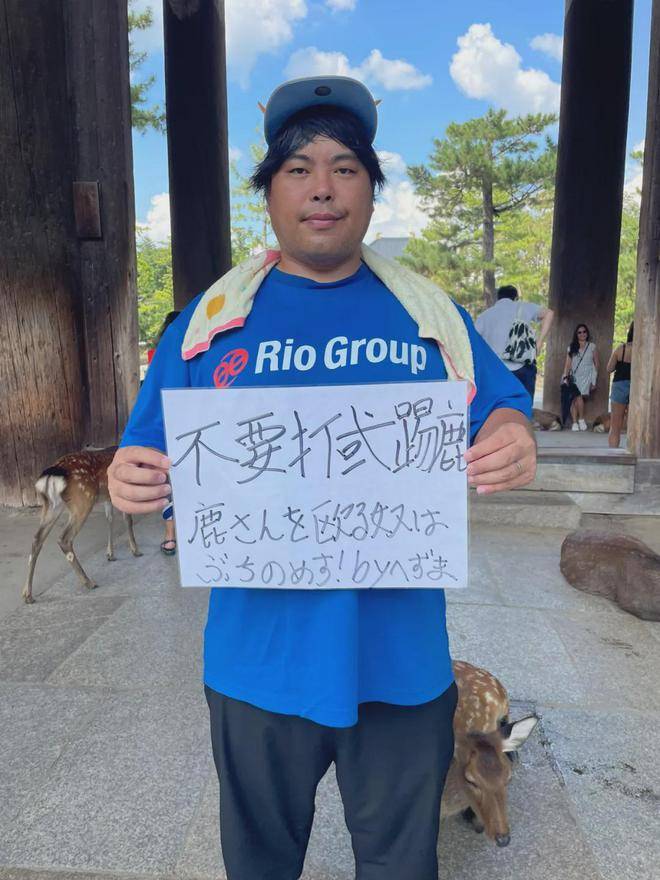 Rio Group
不要打或踢鹿
鹿さんを殴る奴は
ぶちのめす!byへずま